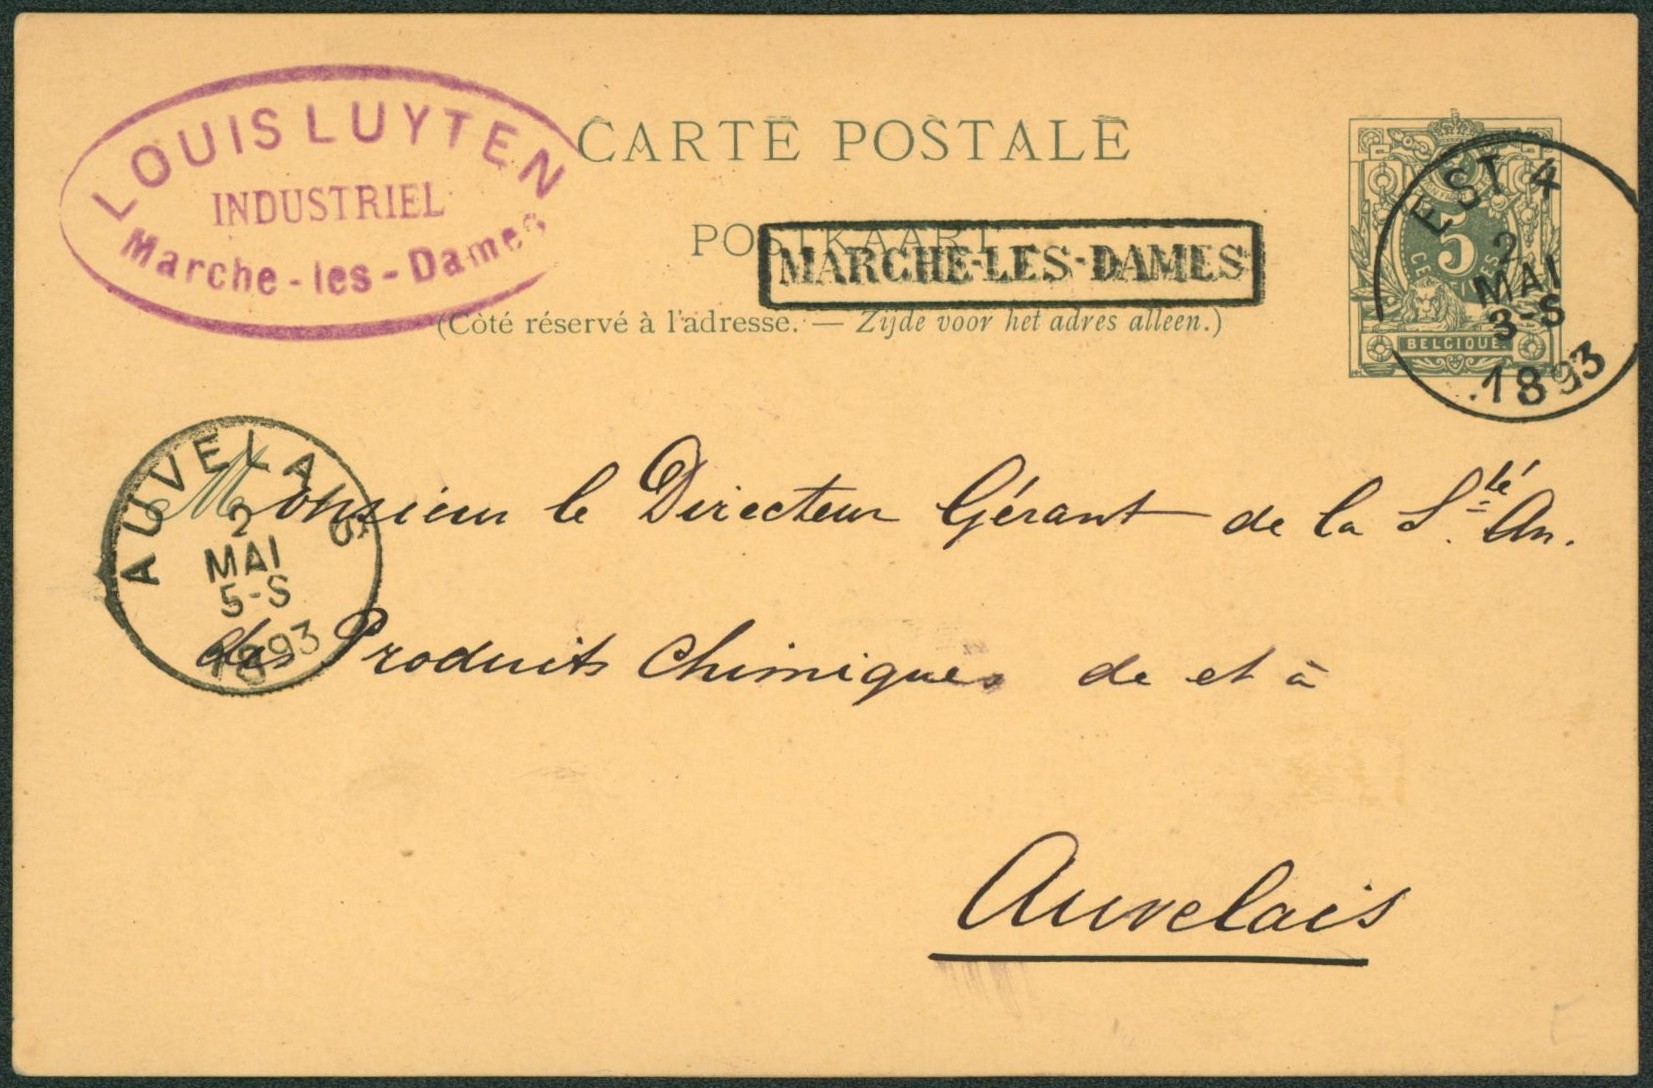 LOUIS LUYTEN
INDUSTRIEL
Marche-les-Dames
CARTE POSTALE
POSTKAART
MARCHE-LES-DAMES
(Côté réservé à l'adresse. — Zijde voor het adres alleen.)
5
CENTIMES
BELGIQUE
EST 4
2
MAI
3-S
1893
AUVELAIS
2
MAI
5-S
1893
Monsieur le Directeur Gérant de la S.té An.
des Produits Chimiques de et à
Auvelais